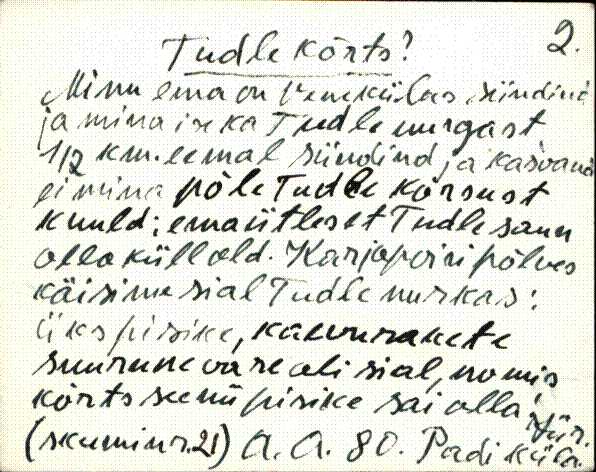 2.
Tudle kõrts?
Minu ema on Venekülas sündind
ja mina ise ka Tudle nurgast
1/2 km. eemal sündind ja kasvand
ei mina põle Tudle kõrsust
kuuld; ema ütles et Tudle saun
olla küll old. Karjapoisi põlves
käisime sial Tudle nurkas:
üks pisike, kaevurakete
suurune vare oli sial, no mis
kõrts see nii pisike sai olla!
(skuminr. 21) A. A. 80. Padi küla.